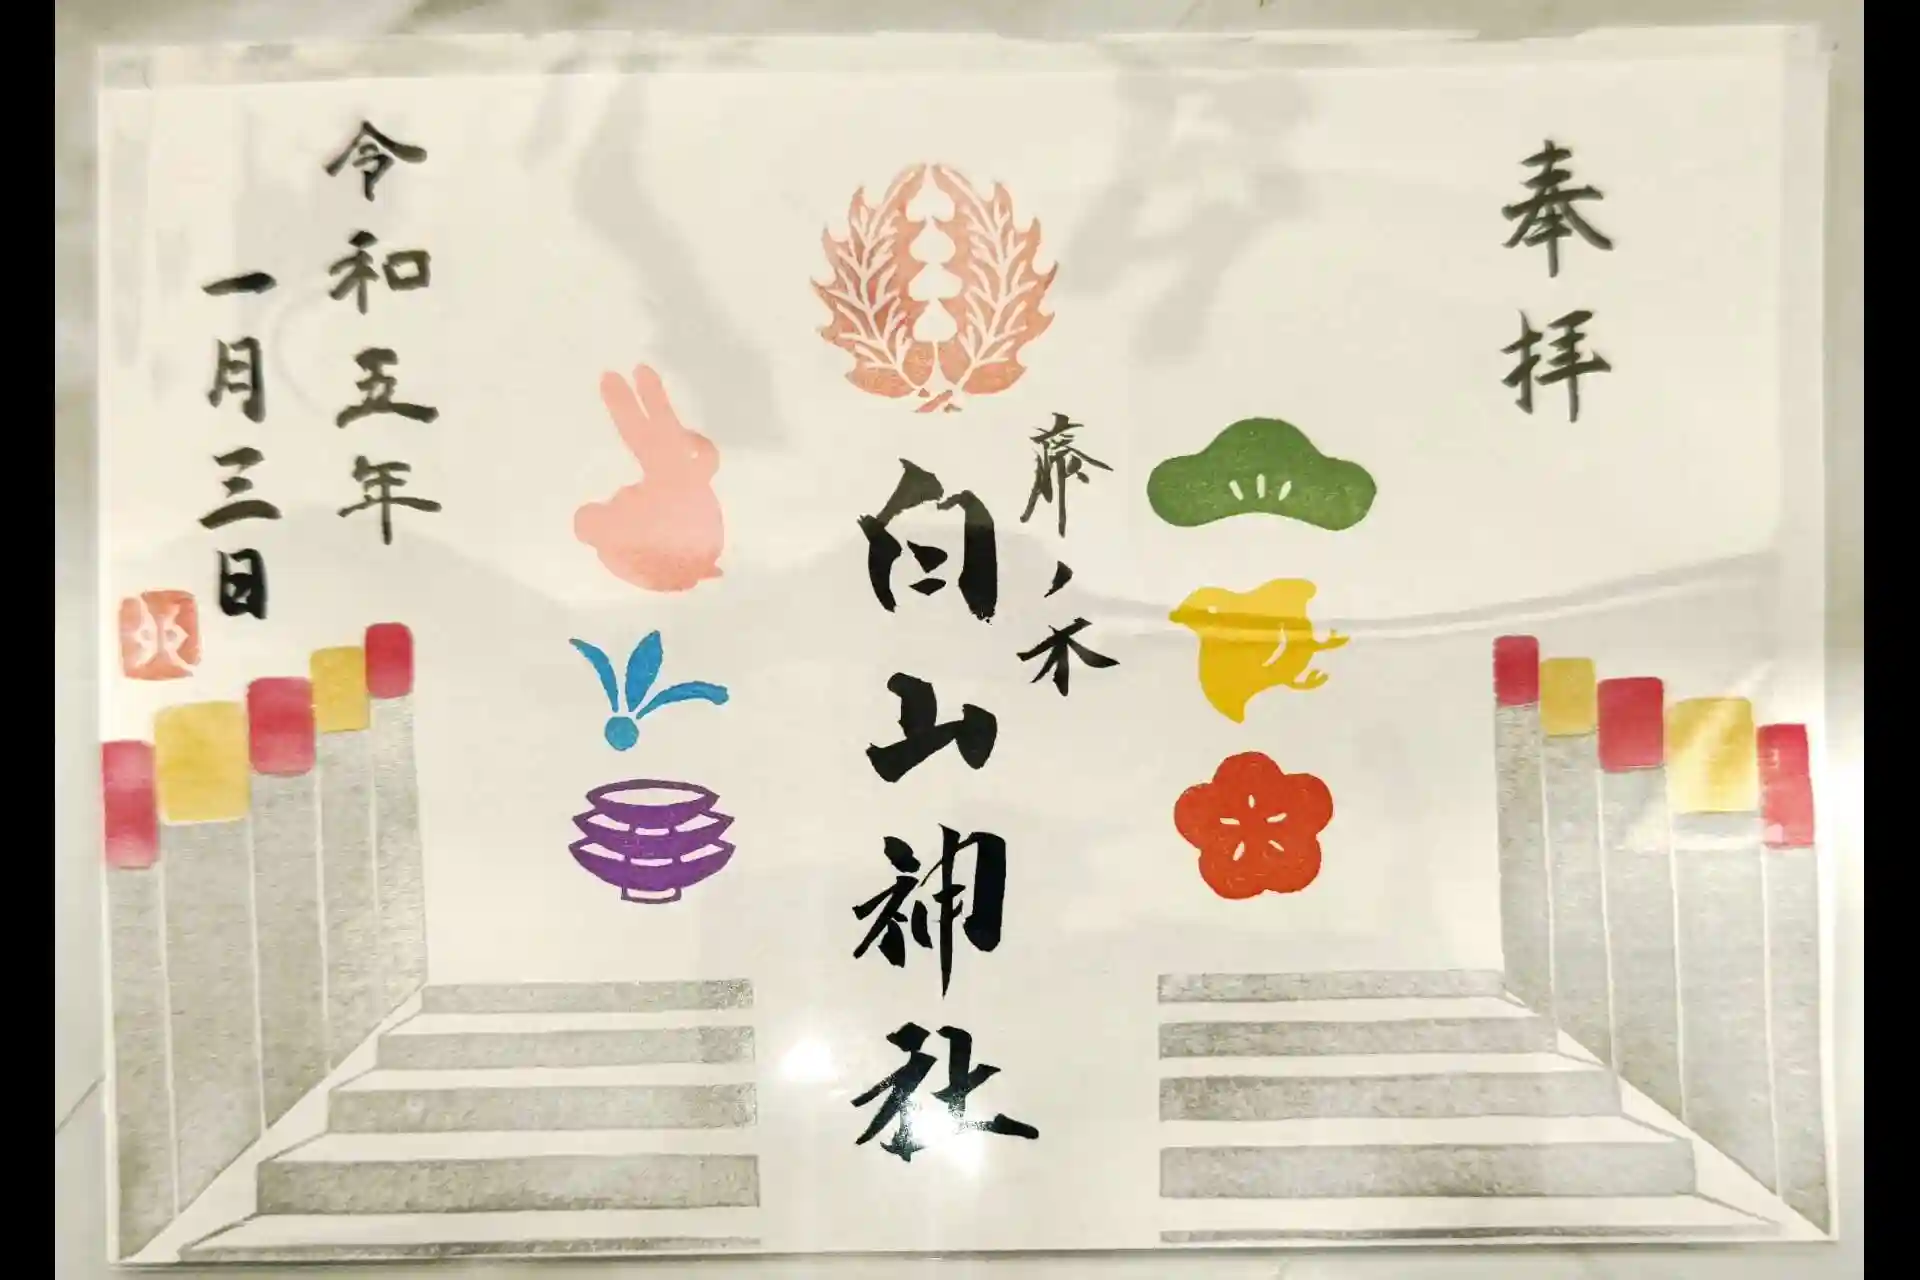 奉拝
藤ノ木
白山神社
令和五年
一月三日